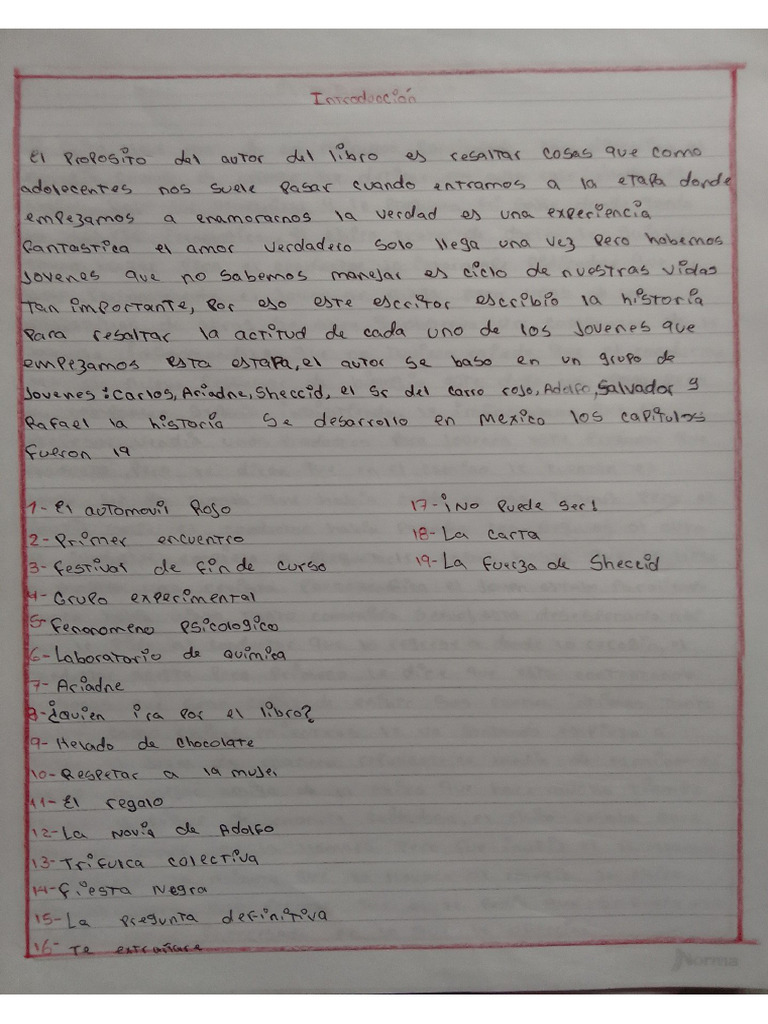 Introducción
El proposito del autor del libro es resaltar cosas que como
adolocentes nos suele pasar cuando entramos a la etapa donde
empezamos a enamorarnos la verdad es una experiencia
fantastica el amor verdadero solo llega una vez pero habemos
Jovenes que no sabemos manejar es ciclo de nuestras vidas
tan importante, por eso este escritor escribio la historia
para resaltar la actitud de cada uno de los Jovenes que
empezamos esta estapa, el autor se baso en un grupo de
Jovenes: Carlos, Ariadne, Sheccid, el Sr del carro rojo, Adolfo, Salvador y
Rafael la historia se desarrollo en mexico los capitulos
fueron 19
1- El automovil Rojo
2- Primer encuentro
3- festival de fin de curso
4- Grupo experimental
5- Fenonomeno psicologico
6- Laboratorio de química
7- Ariadne
8- ¿quien ira por el libro?
9- Helado de chocolate
10- Respetar a la mujer
11- El regalo
12- La novia de Adolfo
13- Trifulca colectiva
14- fiesta Negra
15- La pregunta definitiva
16- Te extrañare
17- ¡No puede ser!
18- La carta
19- La fuerza de Sheccid
Norma